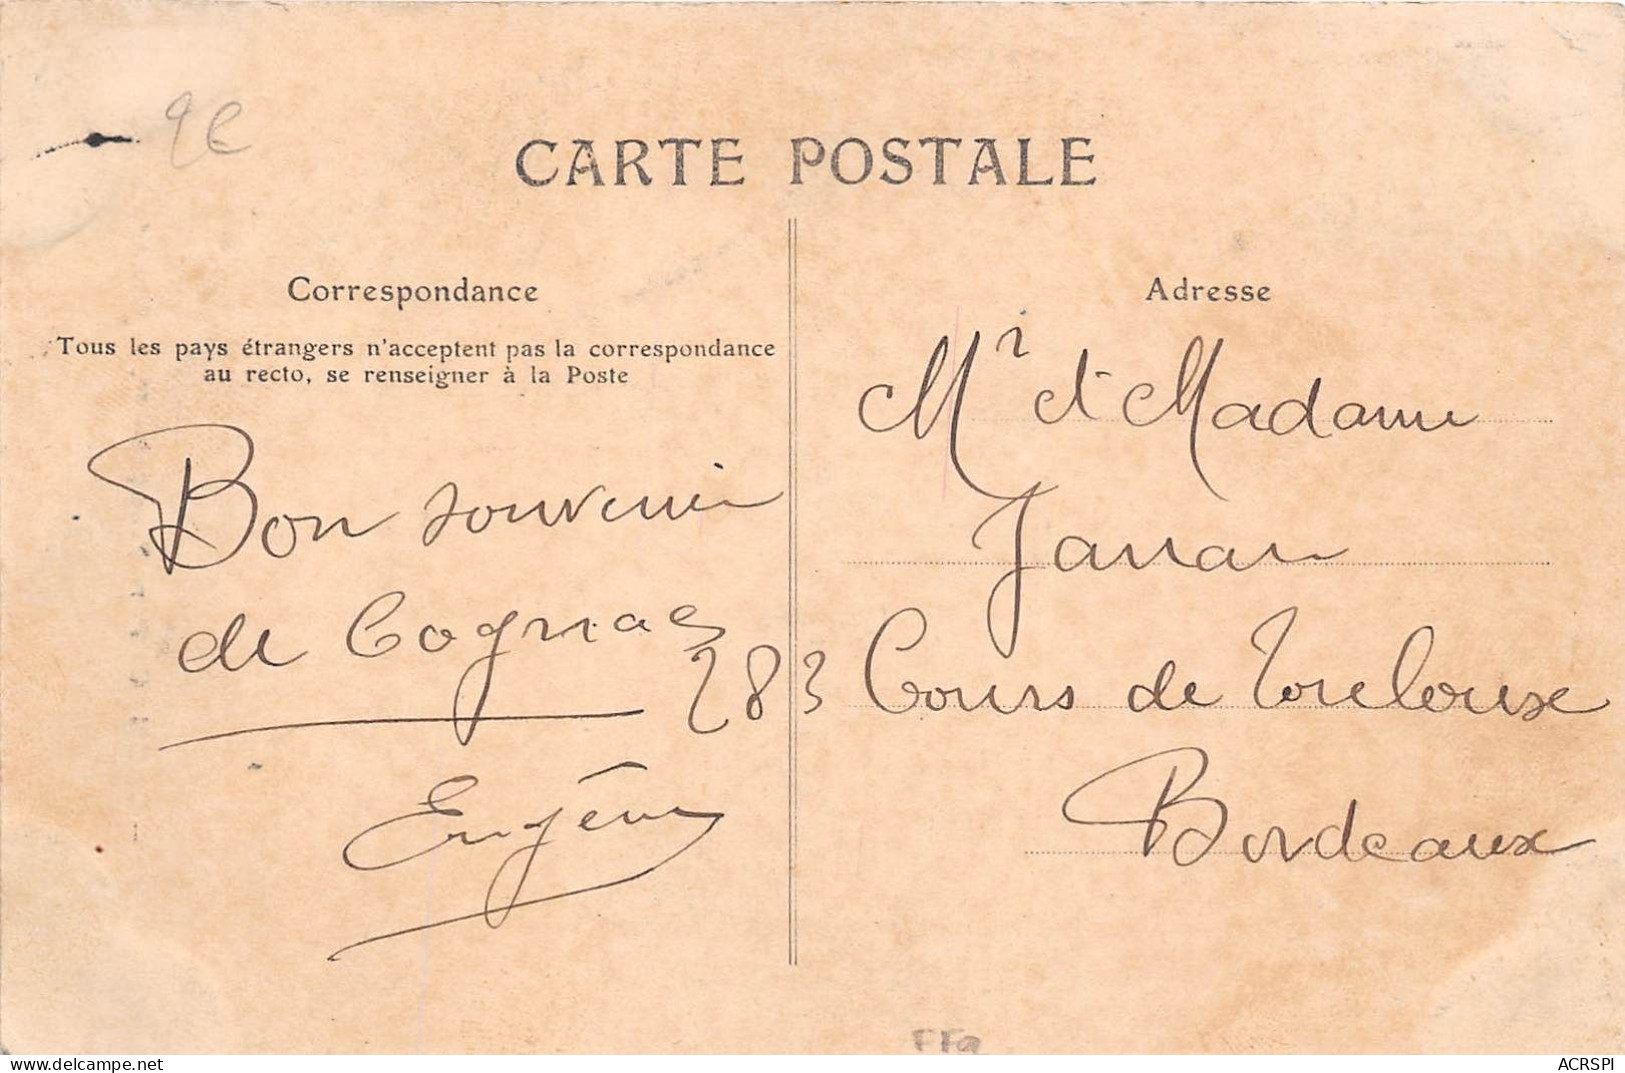 9€
CARTE POSTALE
Correspondance
Tous les pays étrangers n'acceptent pas la correspondance
au recto, se renseigner à la Poste
Bon souvenir
de Cognac
Eugène
Adresse
Mr et Madame
283 Cours de Toulouse
Bordeaux
delcampe.net
ACRSPI